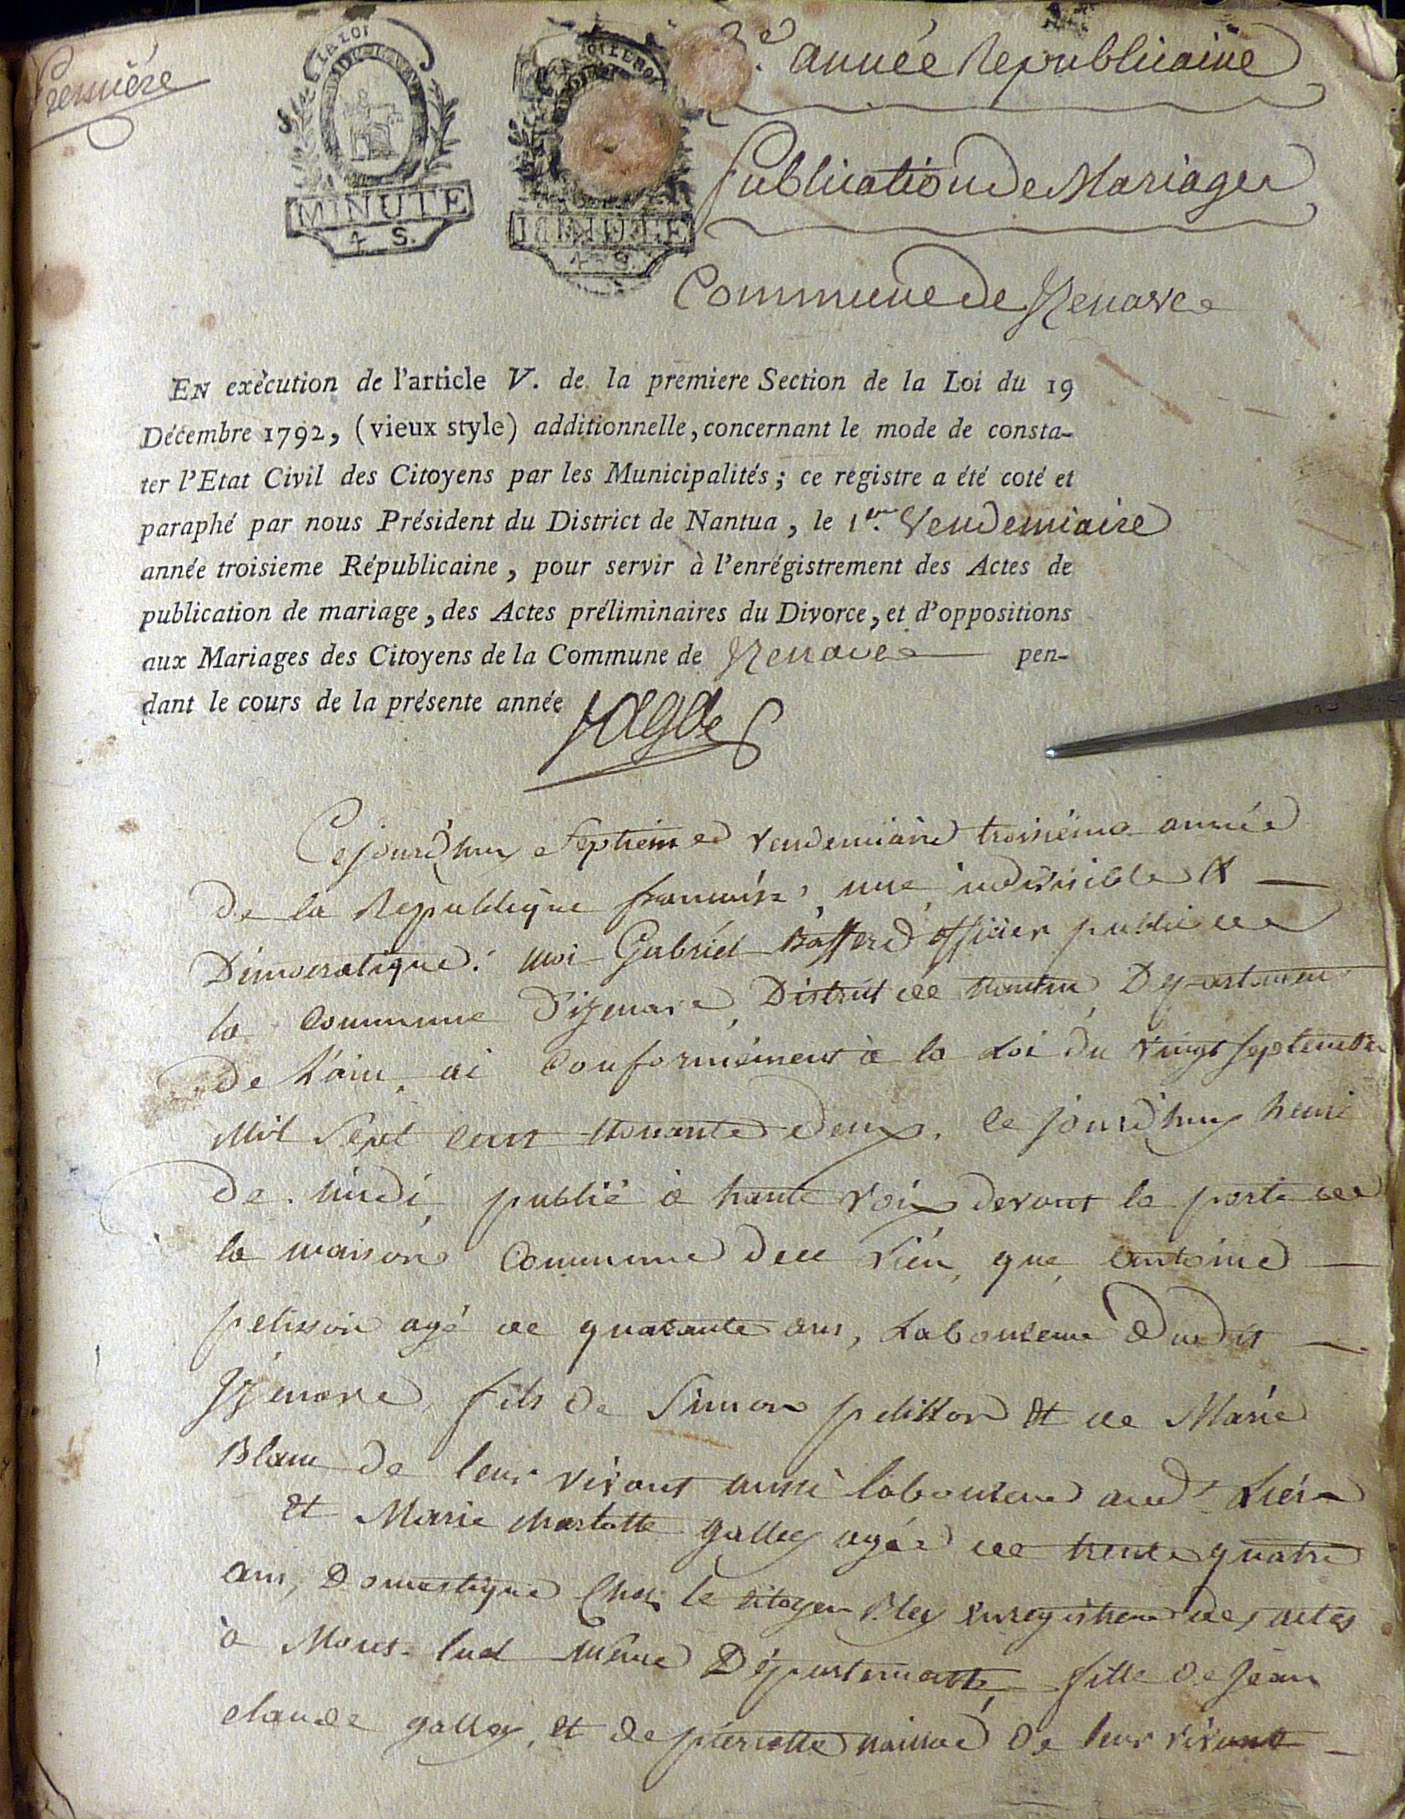 Premiére
LA LOI
MINUTE
4 S.
MINUTE
4 S.
3e. année Republicaine
Publication de Mariages
Commune de Izenave
EN exècution de l'article V. de la premiere Section de la Loi du 19
Décembre 1792, (vieux style) additionnelle, concernant le mode de consta-
ter l'Etat Civil des Citoyens par les Municipalités ; ce registre a été coté et
paraphé par nous Président du District de Nantua, le 1er. Vendemiaire
année troisieme Républicaine, pour servir à l'enrégistrement des Actes de
publication de mariage, des Actes préliminaires du Divorce, et d'oppositions
aux Mariages des Citoyens de la Commune de Izenave pen-
dant le cours de la présente année
Cejourd'huy Septieme vendemiaire troisiéme année
De la Republique francaise, une indivisible et
Démocratique. moi Gabriel officier public de
la Commune D'izenave, District de nantua Departement
De L'ain, ai Conformément à la Loi du vingt septembre
Mil Sept cent nonante deux, ce jourd'huy heure
De midi, publié a haute voix devant la porte de
la maison Commune dece Lieu, que antoine
pelisson agé de quarante ans, Laboureur Dudit
Izenave, fils de Simon pelisson et de Marie
Blanc de leur vivant aussi laboureur aud. Lieu
et Marie charlotte galley agée de trente quatre
ans, Domestique Chez le citoyen enregistreur des actes
à Mont-luel même Département, fille de Jean
claude galley, et de pierrette de leur vivant